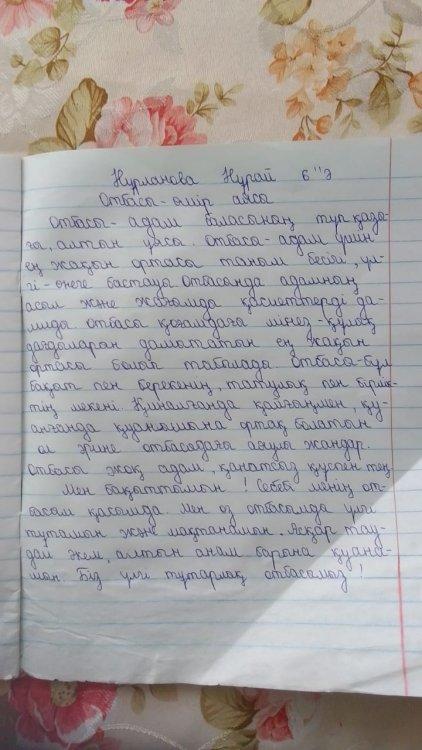 Нұрланова Нұрай 6 "Э
Отбасы - өмір аясы
Отбасы - адам баласының түп қазы-
ғы, алтын ұясы. Отбасы - адам үшін
ең жақын ортасы таным бесігі, үл-
гі - өнеге бастауы. Отбасында адамның
асыл және жағымды қасиеттерді да-
миды. Отбасы қоғамдағы мінез - құлық
дағдыларын дамытатын ең жақын
ортасы болып табылады. Отбасы - бұл
бақыт пен берекенің, татулық пен бірлік-
тің мекені. Қиналғанда қолғаңмен, қу-
анғанда қуанышына ортақ болатын
ол әрине отбасыдағы асыл жандар.
Отбасы жоқ адам, қанатсыз құспен тең.
Мен бақыттымын ! Себебі менің от-
басым қасымда мен өз отбасымды үлгі
тұтамын және мақтанамын. Асқар тау-
дай әкем, алтын анам барына қуана-
мын. Біз үлгі тұтарлық отбасымыз !